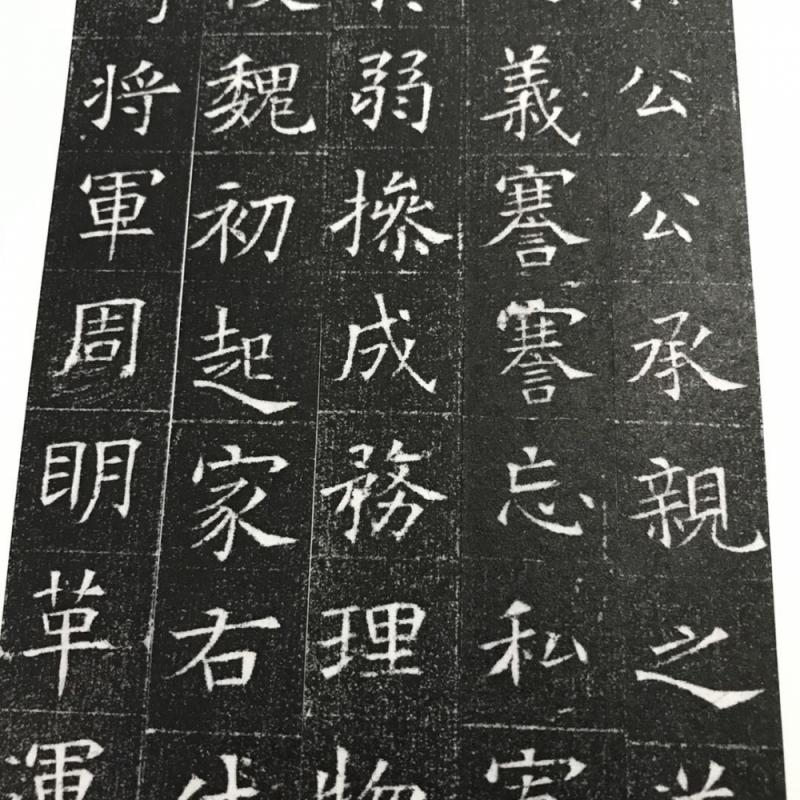 公公承親之
義謇謇忘私
弱操成務理物
魏初起家右
將軍周明革運